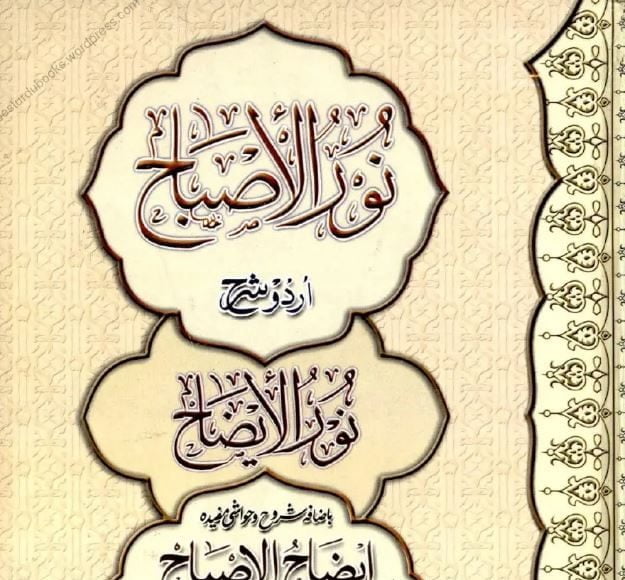 besturdubooks.wordpress.com
نُورُ الأصْبَاح
اُردو شرح
نُورُ الأيضَاح
باضافہ شروح و حواشی مفیدہ
ایضَاحُ الاصبَاح